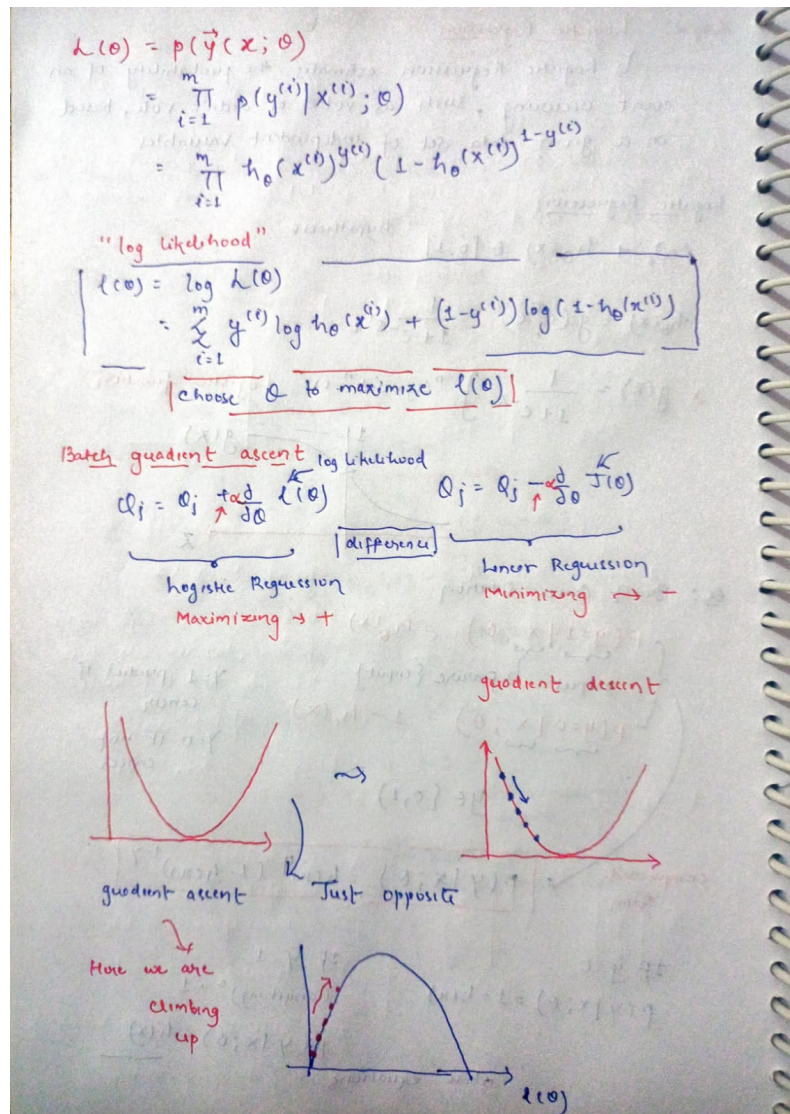 L(θ) = p(y⃗(x; θ)
= m∏i=1 p(y⁽ⁱ⁾|x⁽ⁱ⁾; θ)
= m∏i=1 hθ(x⁽ⁱ⁾)^y⁽ⁱ⁾ (1-hθ(x⁽ⁱ⁾)^1-y⁽ⁱ⁾
"log likelihood"
l(θ) = log L(θ)
= m∑i=1 y⁽ⁱ⁾ log hθ(x⁽ⁱ⁾) + (1-y⁽ⁱ⁾) log(1-hθ(x⁽ⁱ⁾)
choose θ to maximize l(θ)
Batch gradient ascent
log likelihood
θj = θj +α∂/∂θ l(θ)
θj = θj -α∂/∂θ J(θ)
difference
Logistic Regression
Maximizing → +
Linear Regression
Minimizing → -
gradient descent
gradient ascent
Just opposite
Here we are
climbing
up
l(θ)